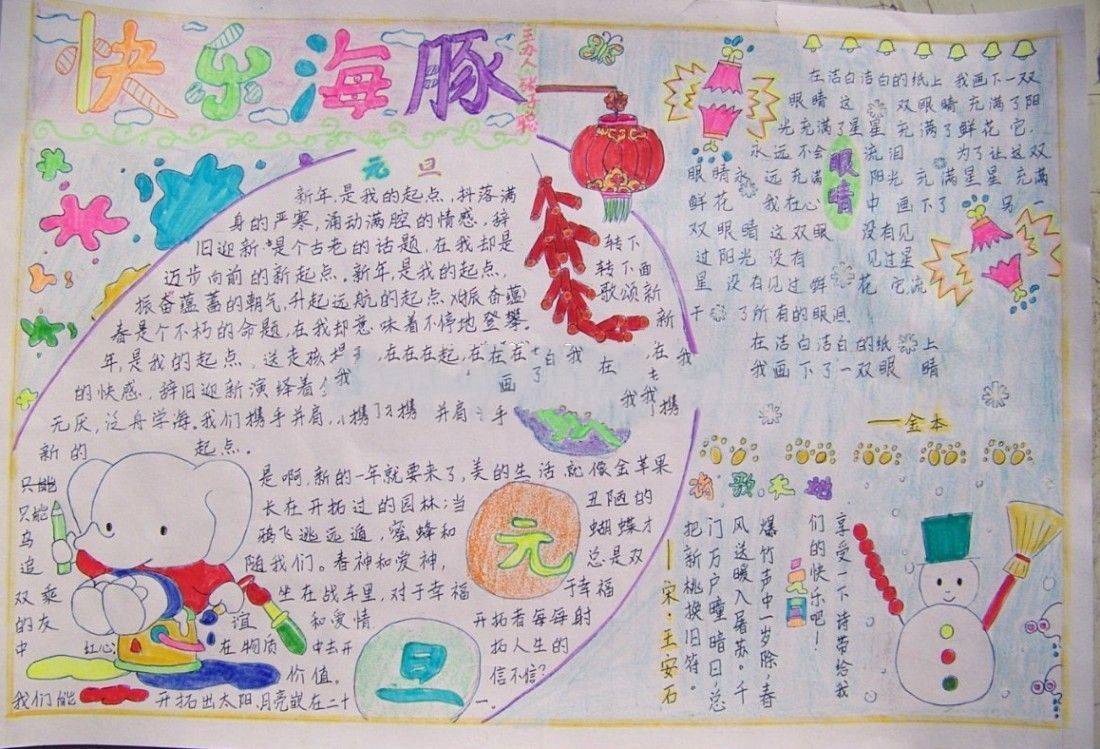 快乐海豚
主办人
元旦
新年是我的起点,抖落满
身的严寒,涌动满腔的情感,辞
旧迎新是个古老的话题,在我却是
迈步向前的新起点。新年是我的起点,
振奋蕴蓄的朝气,升起远航的起点,振奋蕴
春是个不朽的命题,在我却意味着不停地登攀。
转下
转下面
歌颂新
新
年是我的起点,送走孩
在在在起,在在在
白我
在我
我
画了
在
的快感,辞旧迎新演绎着
我我携
元厌,泛舟学海,我们携手并肩,
携
并肩
手
新的
起点。
是啊,新的一年就要来了,美的生活就像金苹果
只能
长在开拓过的园林;当
丑陋的
只能
鸦飞逃远遁,蜜蜂和
蝴蝶才
乌
随我们。春神和爱神,
总是双
追
双乘
坐在战车里,对于幸福
于幸福
的友
谊
和爱情
开拓者每每射
中
红心
在物质
中去开
拓人生的
价值。
信不信?
我们能
开拓出太阳,月亮嵌在二十
一.
元
旦
在洁白洁白的纸上 我画下一双
眼睛 这 双眼睛 充满了阳
光充满了星星 充满了鲜花 它
永远不会 流泪 为了让这双
眼睛永 远充满 阳光 充满星星 充满
鲜花 我在心 中 画下了 另一
双眼睛 这双眼 没有见
过阳光 没有 见过星
星 没有见过鲜 花 它流
干 了所有的眼泪
在洁白洁白的纸 上
我画下了一双眼 睛
眼睛
——金本
诗歌天地
享受一下诗带给我
们的快乐吧!
元日
爆竹声中一岁除,春
风送暖入屠苏。千
门万户曈曈日,总
把新桃换旧符。
——宋·王安石